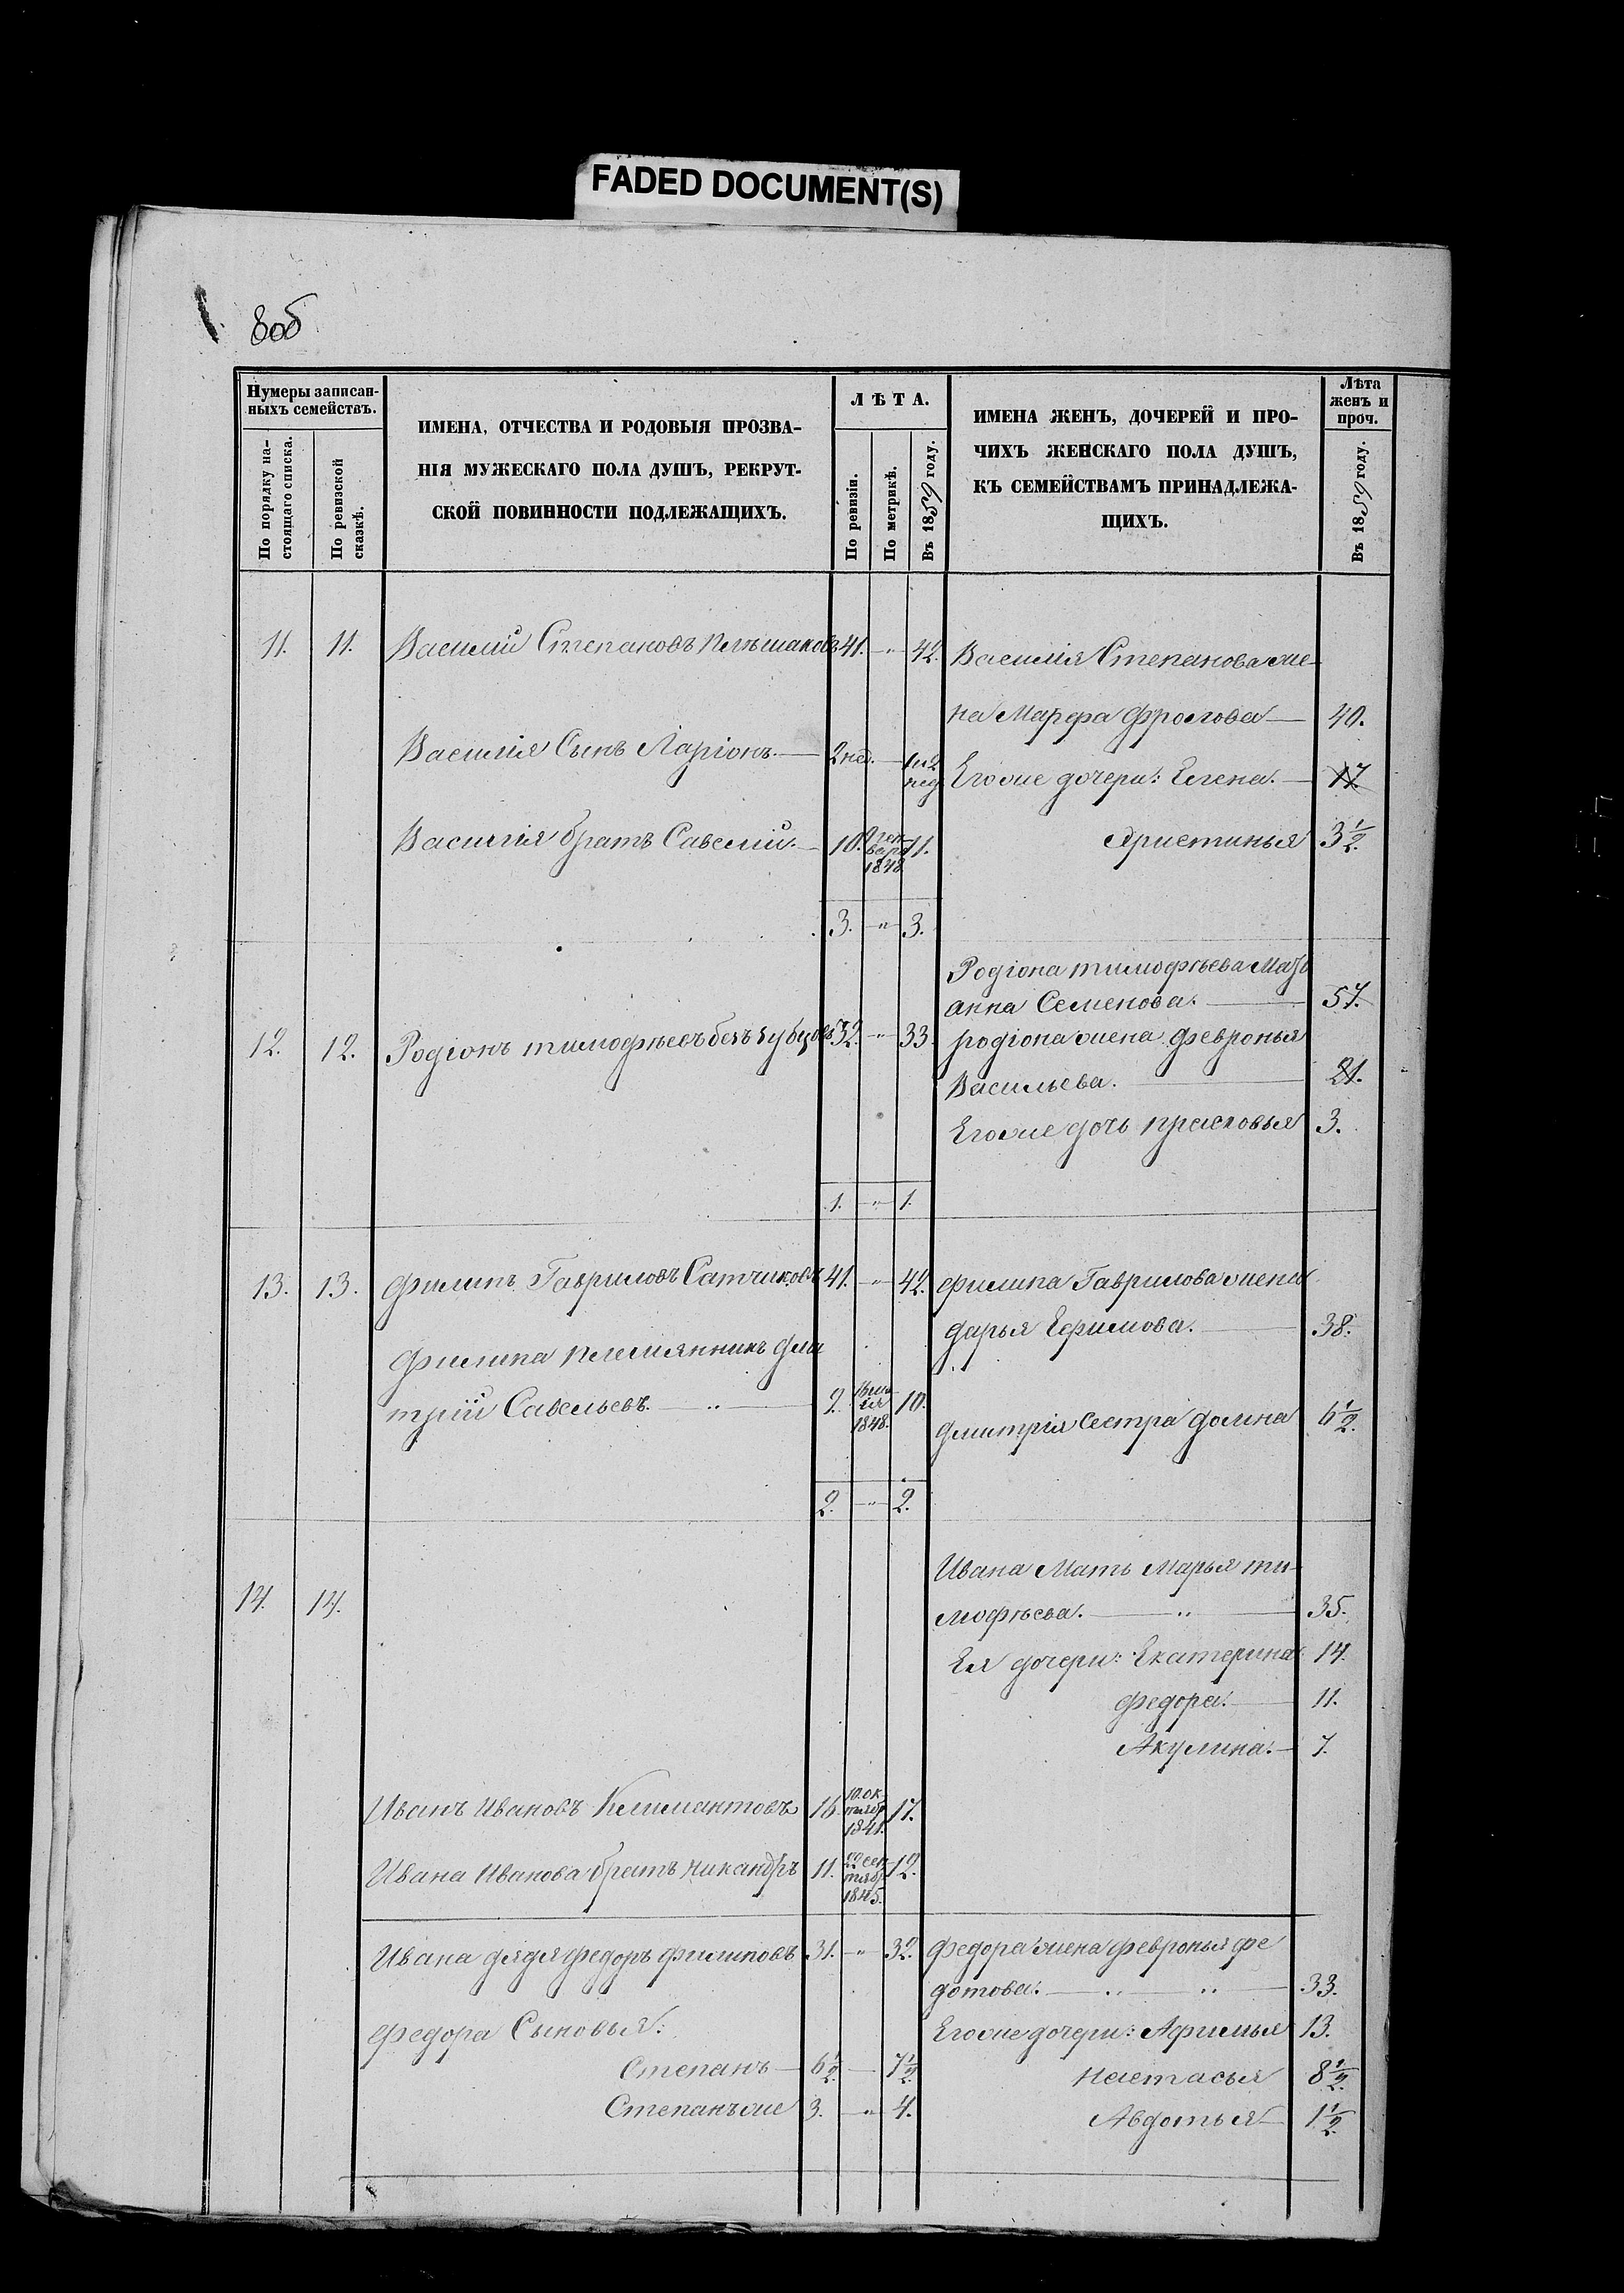 FADED DOCUMENT(S)
8об
Нумеры записан-
ныхъ семействъ.
По порядку на-
стоящаго списка.
По ревизской
сказкѣ.
ИМЕНА, ОТЧЕСТВА И РОДОВЫЯ ПРОЗВА-
НІЯ МУЖЕСКАГО ПОЛА ДУШЪ, РЕКРУТ-
СКОЙ ПОВИННОСТИ ПОДЛЕЖАЩИХЪ.
ЛѢТА.
По ревизіи.
По метрикѣ.
Въ 1859 году.
ИМЕНА ЖЕНЪ, ДОЧЕРЕЙ И ПРО-
ЧИХЪ ЖЕНСКАГО ПОЛА ДУШЪ,
КЪ СЕМЕЙСТВАМЪ ПРИНАДЛЕЖА-
ЩИХЪ.
Лѣта
женъ и
проч.
Въ 1859 году.
11. 11. Василій Степановъ 41. — " 42. Василія Степанова же-
на Марфа Фролова — 40.
Василія Сынъ Ларіонъ. — 2 нед. — 1 и 2 нед
Его же дочери: Елена. — 17
Василія братъ Савелій. — 10. генваря 1848 11.
Христинья 3 1/2
3. — " — 3.
Родіона тимофѣева Мать
анна Семенова. — 57.
12. 12. Родіонъ тимофѣевъ беззубцовъ 32. — " 33. родіона жена Февронья
Васильева. — 21.
Его же дочь прасковья 3.
1. — " — 1.
13. 13. Филипъ Гавриловъ Сатчиковъ 41. — " 42. Филипа Гаврилова жена
дарья Ефимова. — 38.
Филипа племянникъ дми
трій Савельевъ. — " — 9. 1848. 10.
дмитрія Сестра домна 6 1/2.
2. — " — 2.
Ивана Мать Марья ти-
14. 14. мофѣева. — " — 35.
Ея дочери: Екатерина 14.
Федора. — 11.
Акулина. — 7.
Иванъ Ивановъ Климантовъ 16. 10 октябр 1841. 17.
Ивана Иванова братъ никандръ 11. 22 сентябр 1845. 12.
Ивана дядя Федоръ Филиповъ 31. — " 32. Федора жена Февронья Фе
дотова. — " — " — 33.
Федора Сыновья: Его же дочери: Афимья 13.
Степанъ — 6 1/2. — 7 1/2. Настасья 8 1/2.
Степанъ же 3. — " 4. Авдотья — 1 1/2.